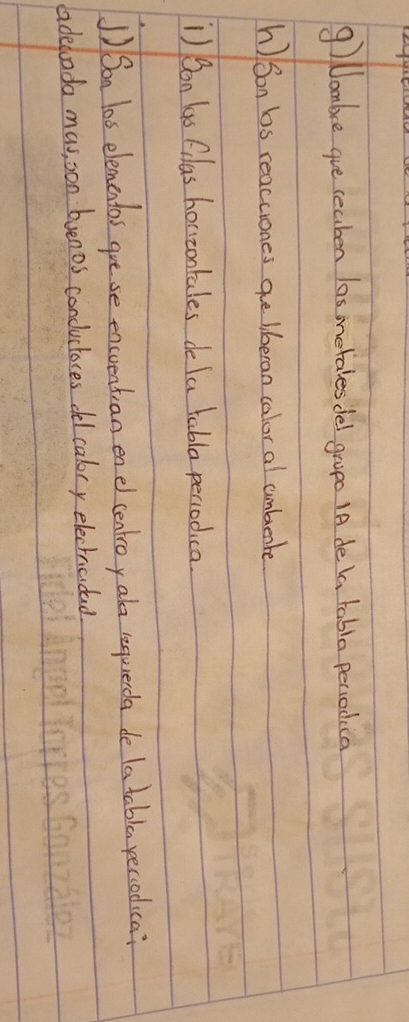 g) Nombre que reciben los metales del grupo IA de la tabla periodica
h) Son las reacciones que liberan calor al ambiente.
i) Son las filas horizontales de la tabla periodica.
j) Son los elementos que se encuentran en el centro y ala izquierda de la tabla periodica;
adewada mas, son buenos conductores del calor y electricidad.
Fidel Angel Torres González